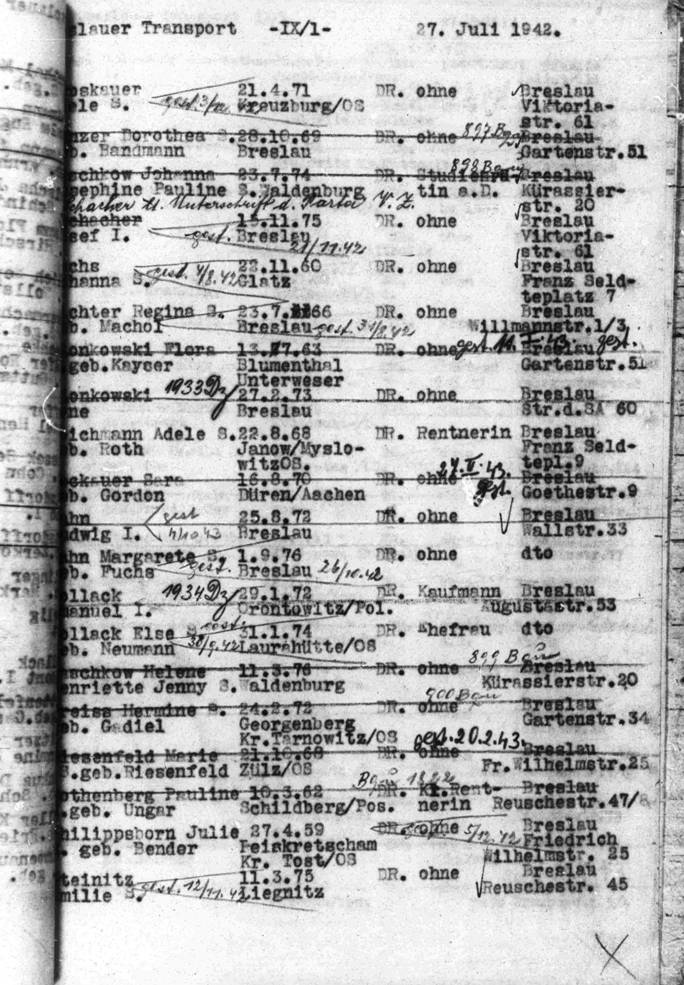 slauer Transport -IX/1- 27. Juli 1942.
oskauer 21.4.71 DR. ohne Breslau
ele S. gest. Kreuzburg/OS Viktoria-
str. 61
nzer Dorothea S. 28.10.69 DR. ohne Breslau
b. Bandmann Breslau Gartenstr.51
schkow Johanna 23.7.74 DR. Studienrä- Breslau
osephine Pauline S. Waldenburg tin a.D. Kürassier-
str. 20
chacher 15.11.75 DR. ohne Breslau
sef I. gest. Breslau 21/11.42 Viktoria-
str. 61
chs 22.11.60 DR. ohne Breslau
hanna S. gest. 4/8.42 Glatz Franz Seld-
teplatz 7
chter Regina S. 23.7. 66 DR. ohne Breslau
b. Machol Breslau gest. Willmannstr.1/3
onkowski Flora 13. 7.63 DR. ohne gest. Breslau gest.
geb.Kayser Blumenthal Gartenstr.51
Unterweser
onkowski 1933 Dz 27.2.73 DR. ohne Breslau
ne Breslau Str.d.SA 60
ichmann Adele S. 22.8.68 DR. Rentnerin Breslau
b. Roth Janow/Myslo- Franz Seld-
witzOS. tepl.9
ckauer Sara 16.8.70 DR. ohne Breslau
b. Gordon Düren/Aachen gest. Goethestr.9
hn gest 25.8.72 DR. ohne Breslau
dwig I. Breslau Wallstr.33
hn Margarete S. 1.9.76 DR. ohne dto
b. Fuchs gest. Breslau 26/10.42
llack 1934 Dz 29.1.72 DR. Kaufmann Breslau
manuel I. Orontowitz/Pol. Augustastr.53
llack Else S. gest. 31.1.74 DR. Ehefrau dto
b. Neumann 30/9.42 Laurahütte/OS
899 Bau
schkow Helene 11.3.76 DR. ohne Breslau
enriette Jenny S. Waldenburg Kürassierstr.20
900 Bau
reiss Hermine S. 24.2.72 DR. ohne Breslau
eb. Gadiel Georgenberg Gartenstr.34
Kr.Tarnowitz/OS gest. 20.2.43.
iesenfeld Marie 21.10.68 DR. ohne Breslau
S.geb.Riesenfeld Zülz/OS Fr.Wilhelmstr.25
othenberg Pauline 10.3.62 DR. Kl.Rent- Breslau
.geb. Ungar Schildberg/Pos. nerin Reuschestr.47/
hilippsborn Julie 27.4.59 DR. ohne Breslau
. geb. Bender Peiskretscham 5/12.42 Friedrich
Kr. Tost/OS Wilhelmstr. 25
teinitz 11.3.75 DR. ohne Breslau
milie S. gest. 12/11.42 Liegnitz Reuschestr. 45